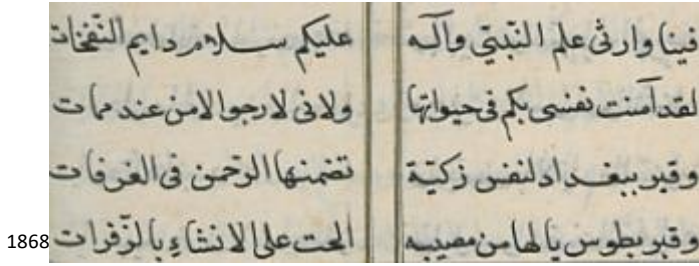 فينا وارثى علم النّبىّ وآله عليكم سلام دايم النّفخات
لقد آمنت نفسى بكم فى حيواتها ولانى لارجوا الامن عند ممات
وقبر ببغداد لنفس زكيّة تضمنها الرّحمن فى الغرفات
وقبر بطوس يا لها من مصيبه الحت على الانشاءِ بالزّفرات
1868